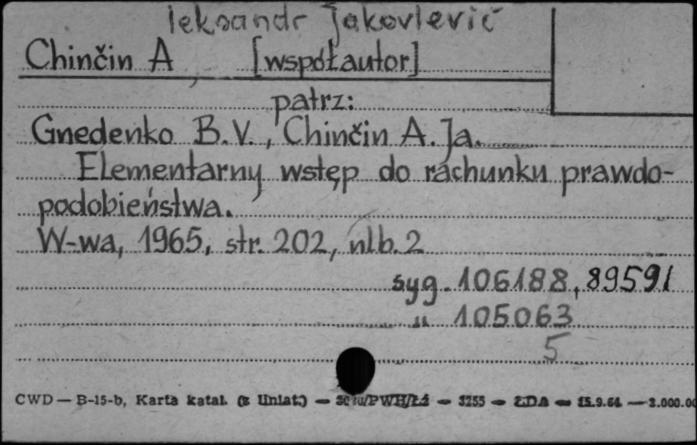 leksandr Jakovlevič
Chinčin A, [współautor]
patrz:
Gnedenko B.V., Chinčin A.Ja.
Elementarny wstęp do rachunku prawdo-
podobieństwa.
W-wa, 1965, str. 202, nlb. 2
syg. 106188, 89591
" 105063
5
CWD — B-15-b, Karta katal. (z liniat.) — PWH/Łź — 3255 — ŁDA — 15.9.64 — 3.000.00